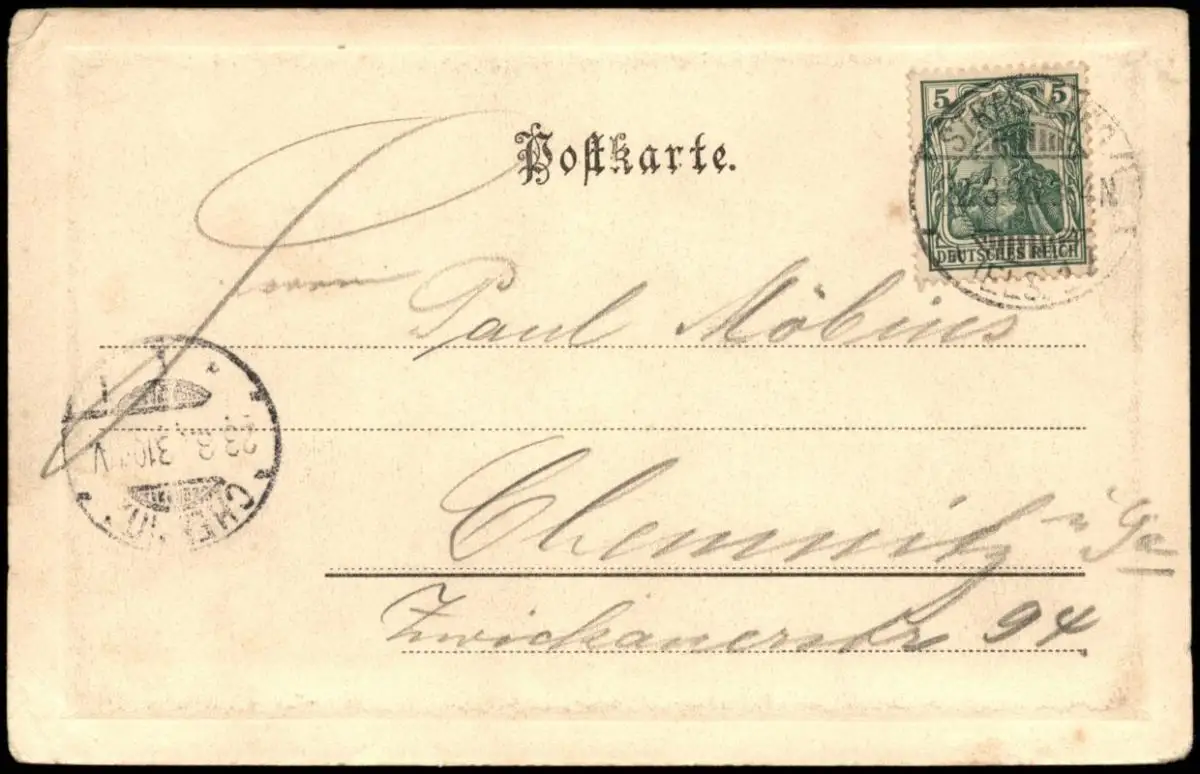 Postkarte.
5 5
DEUTSCHES REICH
Herrn Paul Möbius
Chemnitz i/Sa
Zwickauerstr 94
CHEMNITZ